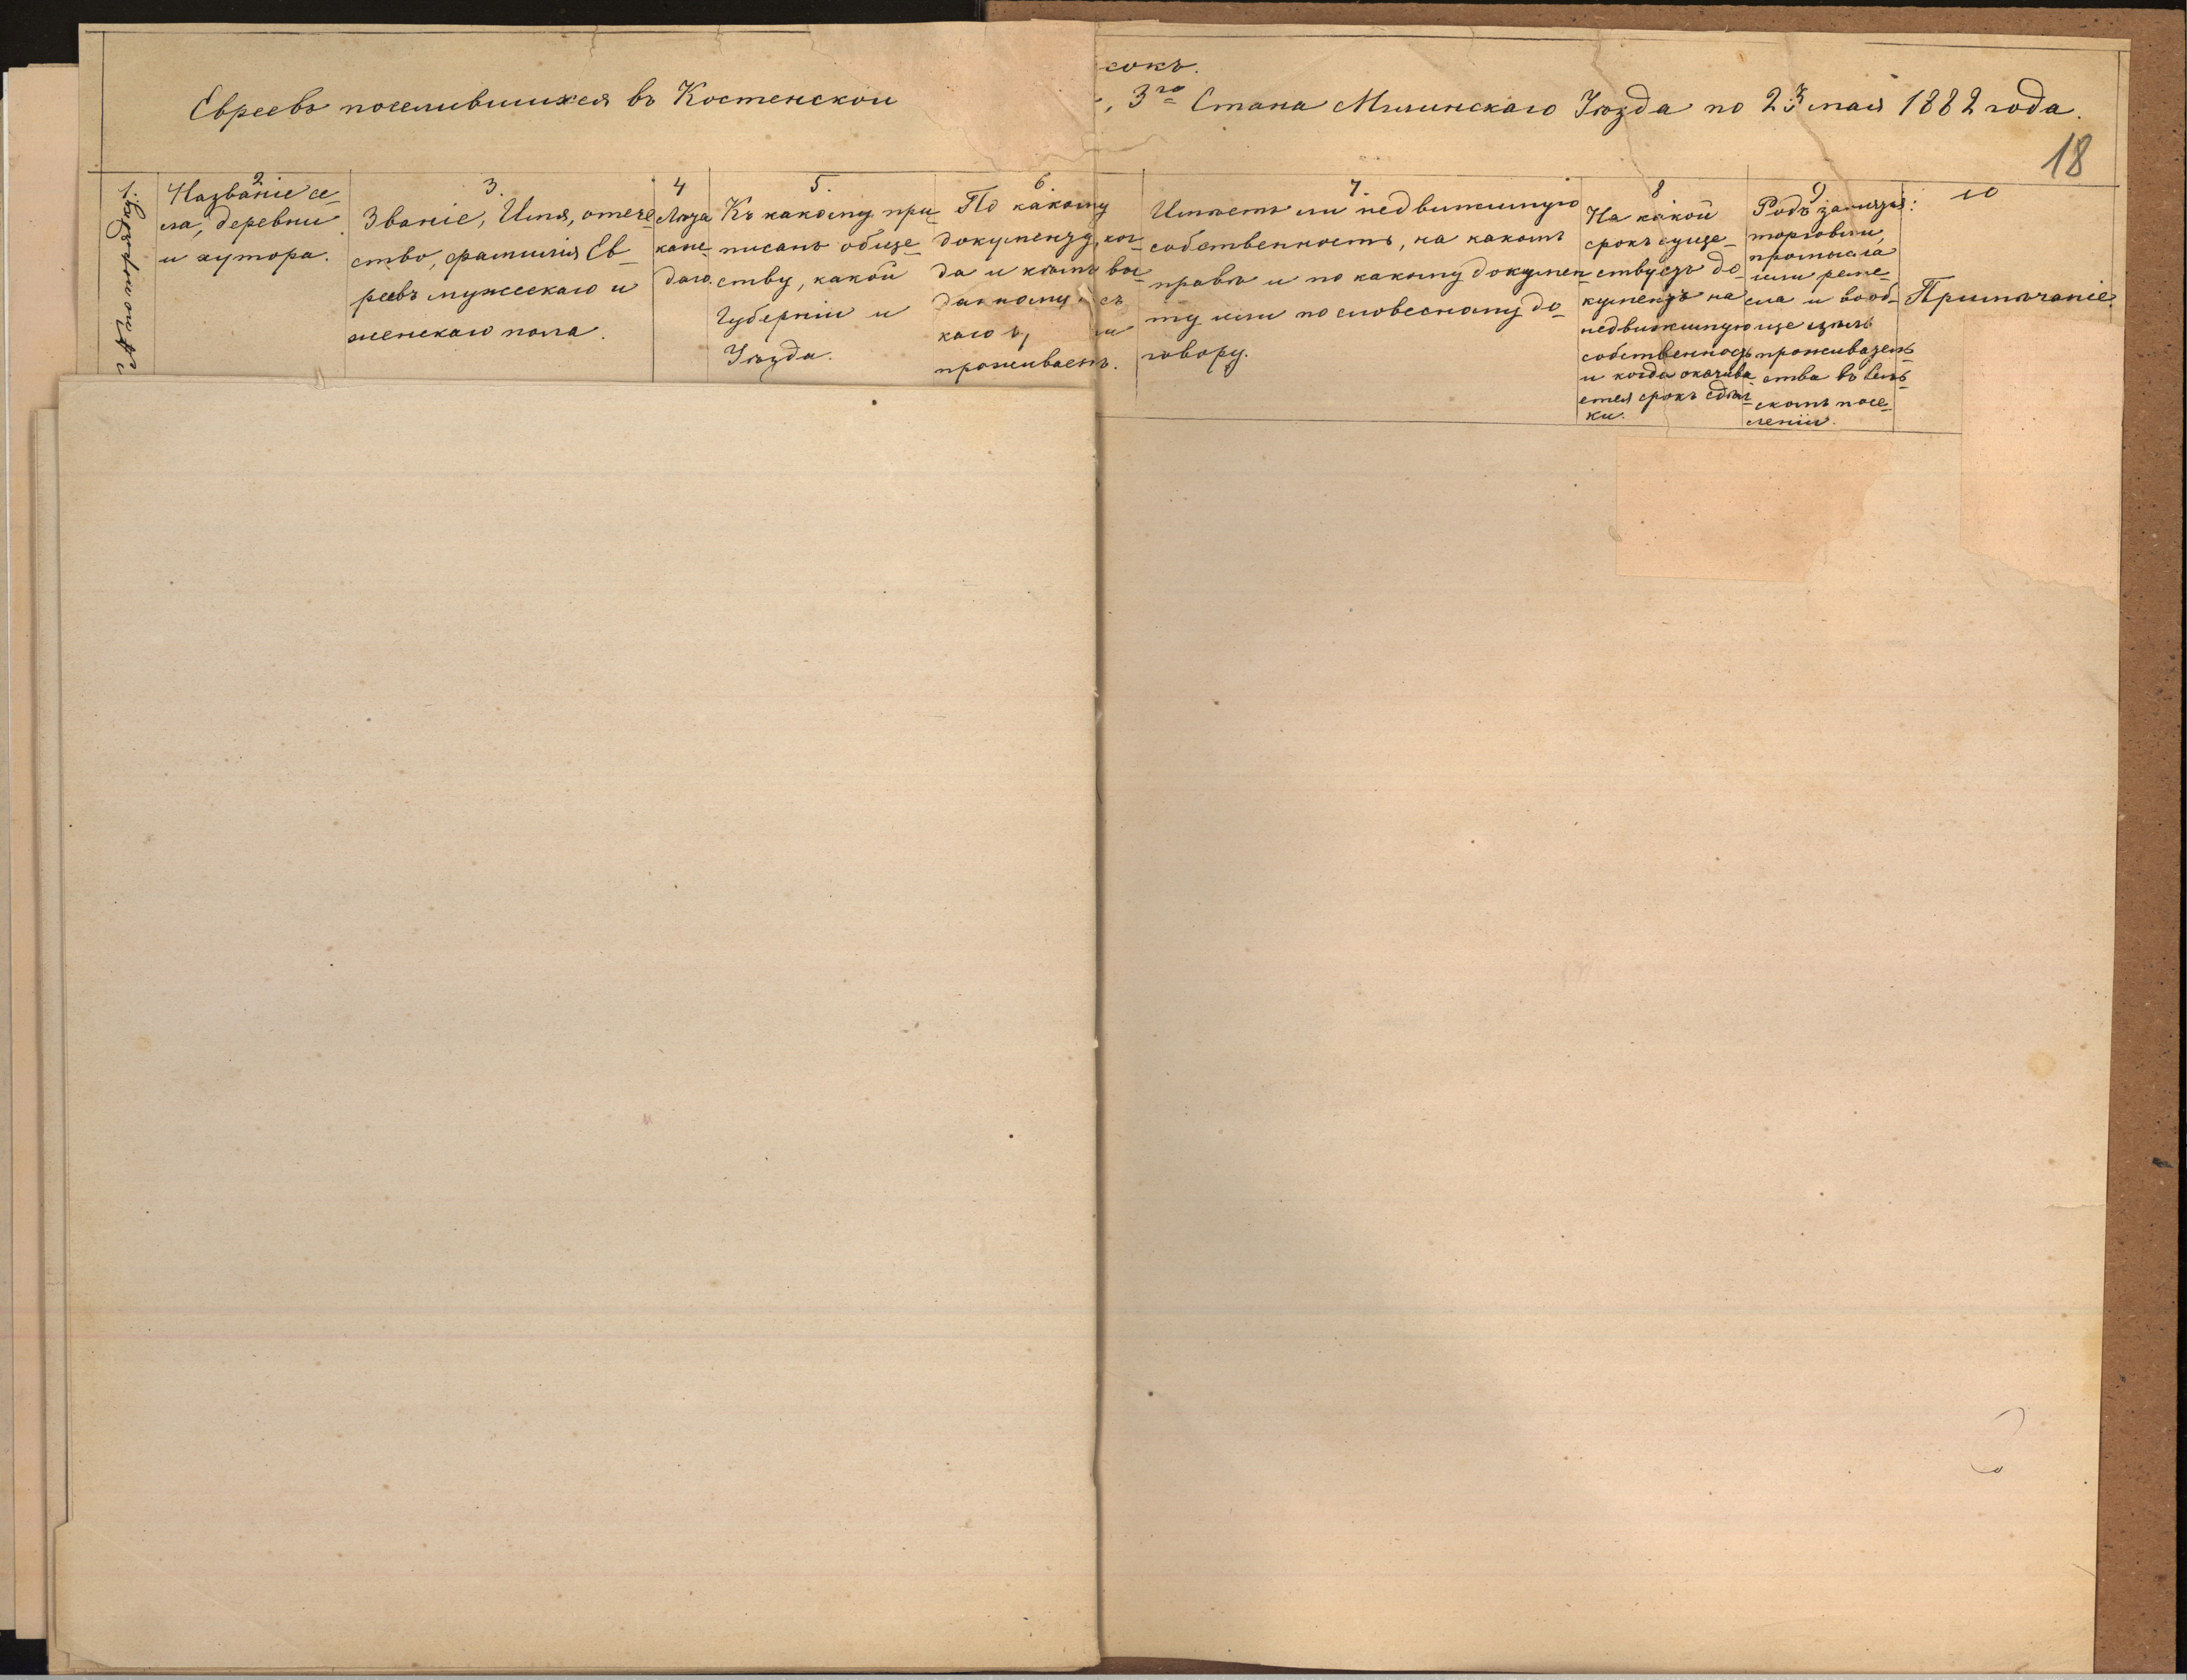 сокъ.
Евреевъ поселившихся въ Костенской
3го Стана Мглинскаго Уѣзда по 23 мая 1882 года.
18
1.
№ по порядку.
2
Названіе се-
ла, деревни
и хутора.
3.
Званіе, Имя, отече-
ство, фамилія Ев-
реевъ мужескаго и
женскаго пола.
4
Лѣта
каж-
даго.
5.
Къ какому при-
писанъ обще-
ству, какой
Губерніи и
Уѣзда.
6.
По какому
документу, ког-
да и кѣмъ вы-
данному, съ
каго
проживаетъ.
7.
Имѣетъ ли недвижимую
собственность, на какомъ
правѣ и по какому докумен-
ту или по словесному до-
говору.
8
На какой
срокъ суще-
ствуетъ до-
кументъ на
недвижимую
собственность
и когда оканчива-
ется срокъ сдѣл-
ки.
9
Родъ занятія:
торговли,
промысла
или реме-
сла и вооб-
ще цѣль
проживатель-
ства въ сель-
скомъ посе-
леніи.
10
Примѣчаніе.